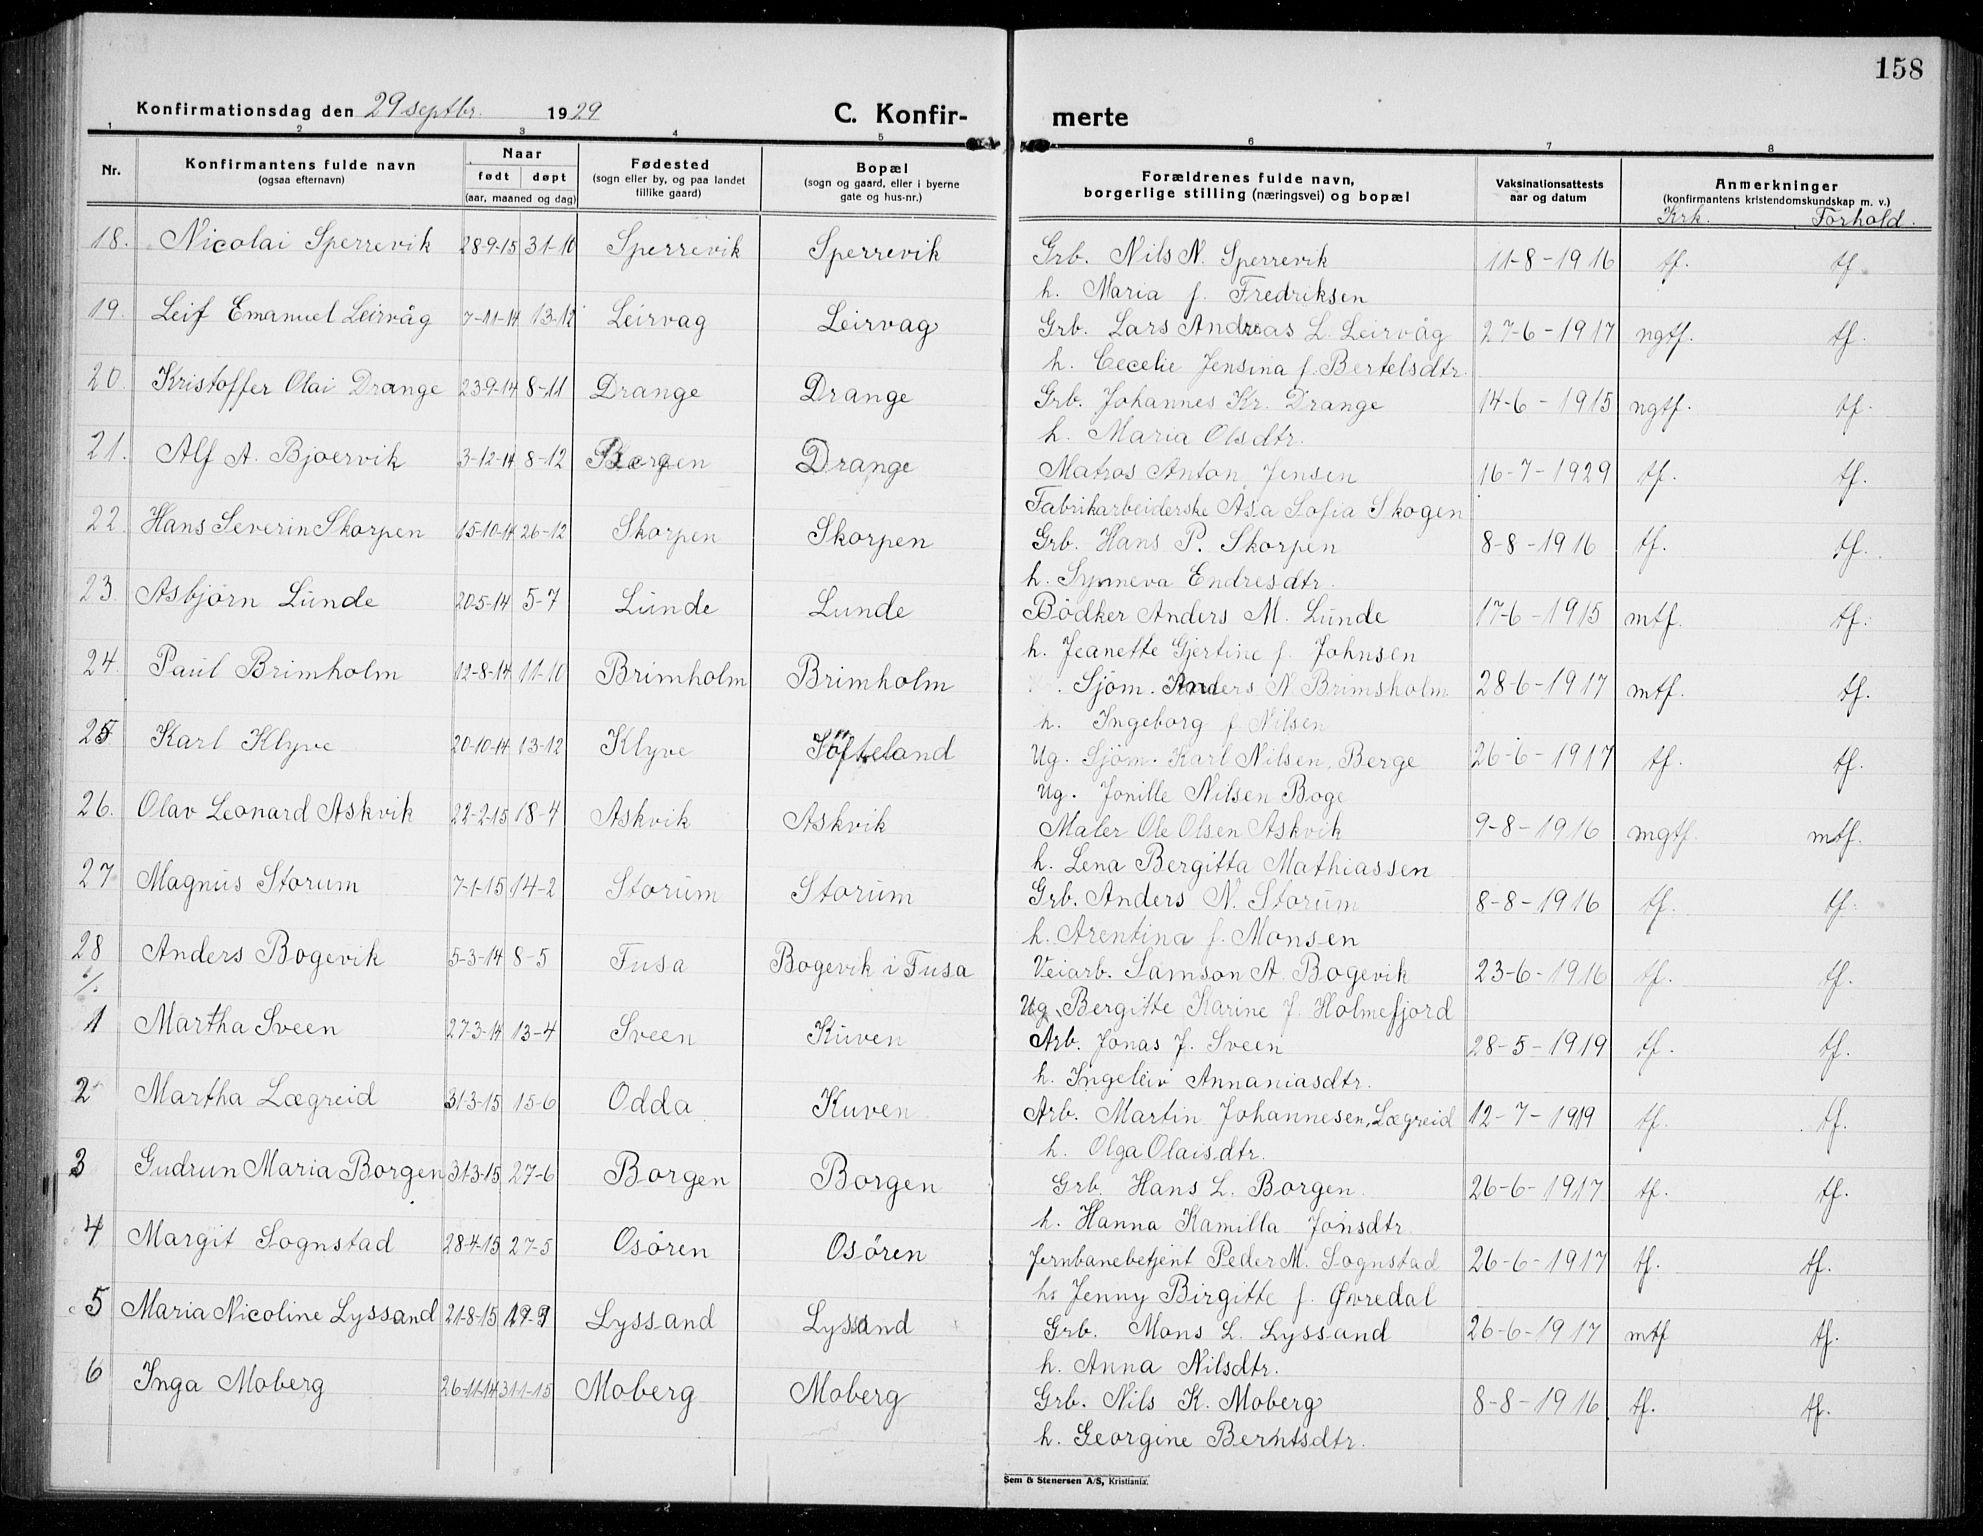 158
Konfirmationsdag den 29 septbr. 1929 C. Konfir- merte
1 2 3 4 5 6 7 8
Nr. Konfirmantens fulde navn (ogsaa efternavn) Naar født døpt (aar, maaned og dag) Fødested (sogn eller by, og paa landet tillike gaard) Bopæl (sogn og gaard, eller i byerne gate og hus-nr.) Forældrenes fulde navn, borgerlige stilling (næringsvei) og bopæl Vaksinationsattests aar og datum Anmerkninger (konfirmantens kristendomskundskap m. v.)
Krk. Forhold.
18. Nicolai Sperrevik 28-9-15 31-10 Sperrevik Sperrevik Grb. Nils N. Sperrevik 11-8-1916 tf. tf.
h. Maria f. Fredriksen
19. Leif Emanuel Leirvåg 7-11-14 13-12 Leirvag Leirvag Grb. Lars Andreas L. Leirvåg 27-6-1917 ngtf. tf.
h. Cecelie Jensina f. Bertelsdtr.
20. Kristoffer Olai Drange 23-9-14 8-11 Drange Drange Grb. Johannes Kr. Drange 14-6-1915 ngtf. tf.
h. Maria Olsdtr.
21. Alf A. Bjoervik 3-12-14 8-12 Bergen Drange Matros Anton Jensen 16-7-1929 tf. tf.
Fabrikarbeiderske Åsa Sofia Skogen
22. Hans Severin Skorpen 15-10-14 26-12 Skorpen Skorpen Grb. Hans P. Skorpen 8-8-1916 tf. tf.
h. Synneva Endresdtr.
23. Asbjørn Lunde 20-5-14 5-7 Lunde Lunde Bödker Anders M. Lunde 17-6-1915 mtf. tf.
h. Jeanette Gjertine f. Johnsen
24. Paul Brimholm 12-8-14 11-10 Brimholm Brimholm Sjöm. Anders N. Brimsholm 28-6-1917 mtf. tf.
h. Ingeborg f Nilsen
25 Karl Klyve 20-10-14 13-12 Klyve Söfteland Ug. Sjöm. Karl Nilsen, Berge 26-6-1917 tf. tf.
Ug. Jonille Nilsen Boge
26. Olav Leonard Askvik 22-2-15 18-4 Askvik Askvik Maler Ole Olsen Askvik 9-8-1916 mgtf. mtf.
h. Lena Bergitta Mathiassen
27 Magnus Storum 7-1-15 14-2 Storum Storum Grb. Anders N. Storum 8-8-1916 tf. tf.
h. Arentina f. Monsen
28 Anders Bogevik 5-3-14 8-5 Fusa Bogevik i Fusa Veiarb. Samson A. Bogevik 23-6-1916 tf. tf.
Ug. Bergitte Karine J. Holmefjord
1 Martha Sveen 27-3-14 13-4 Sveen Kuven Arb. Jonas J. Sveen 28-5-1919 tf. tf.
h. Ingeleiv Annaniasdtr.
2 Martha Lægreid 31-3-15 15-6 Odda Kuven Arb. Martin Johannesen, Lægreid 12-7-1919 tf. tf.
h. Olga Olaisdtr.
3 Gudrun Maria Borgen 31-3-15 27-6 Borgen Borgen Grb. Hans L. Borgen. 26-6-1917 tf. tf.
h. Hanna Kamilla Jonsdtr
4 Margit Sognstad 28-4-15 27-5 Osören Osören Jernbanebetjent Peder M. Sognstad 26-6-1917 tf. tf.
h. Jenny Birgitte f. Øvredal
5 Maria Nicoline Lyssand 21-8-15 19-9 Lyssand Lyssand Grb. Mons L. Lyssand 26-6-1917 mtf tf.
h. Anna Nilsdtr.
6 Inga Moberg 26-11-14 31-1-15 Moberg Moberg Grb. Nils K. Moberg 8-8-1916 tf. tf.
h. Georgine Berntsdtr.
Sem & Stenersen A/S, Kristiania.